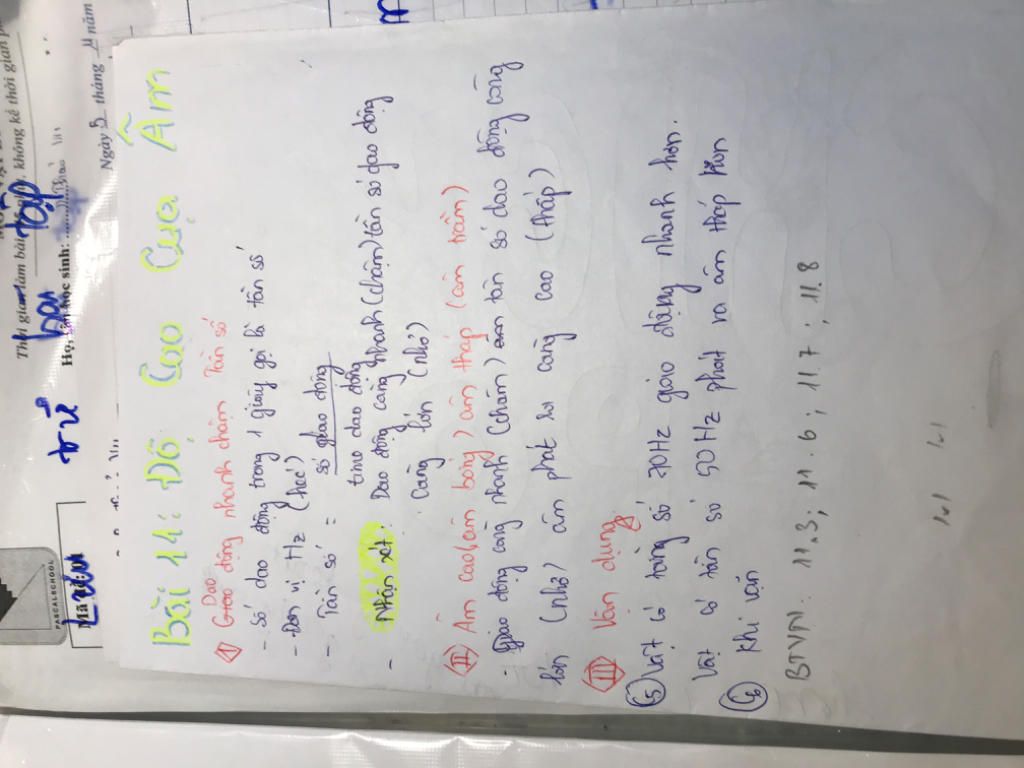 Thời gian làm bài
, không kể thời gian
Họ tên học sinh:
Ngày 5 tháng 11 năm
PASCALSCHOOL
Mã đề
từ
bài tập
Bài 11: Độ Cao Của Âm
I Dao
Giao động nhanh chậm Tần số
- Số dao động trong 1 giây gọi là tần số
- Đơn vị Hz (héc)
- Tần số = số giao động
time dao động
- Nhận xét: Dao động càng nhanh (chậm) tần số dao động
càng lớn (nhỏ)
II Âm cao (âm bổng) âm tháp (âm trầm)
- Giao động càng nhanh (chậm) tần số dao động càng
lớn (nhỏ) âm phát ra càng cao (tháp)
III Vận dụng
C5 Vật có tầng số 70Hz giao động nhanh hơn.
Vật có tần số 50Hz phát ra âm tháp hơn
C6 Khi vặn
BTVN: 11.3; 11.6; 11.7; 11.8